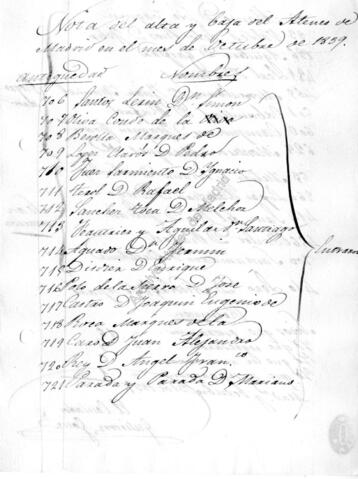 Nota del alta y baja del Ateneo de
Madrid en el mes de Octubre de 1839.
Antiguedad Nombres
706 Santos Lerin Dn Simon
707 Oliva Conde de la
708 Marques de
709 Lopez Claros D. Pedro
710 Sarmiento D. Ignacio
711 D. Rafael
712 Sanchez Toca D. Melchor
713 y Aguilar Dn Santiago
714 Aguado Dn Fermin
715 D. Enrique
716 Polo de la Sierra D. Jose
717 Castro D. Joaquin Eugenio de
718 Roca Marques de la
719 D. Juan Alejandro
720 Rey D. Angel Franco
721 Parada y Parada D. Mariano